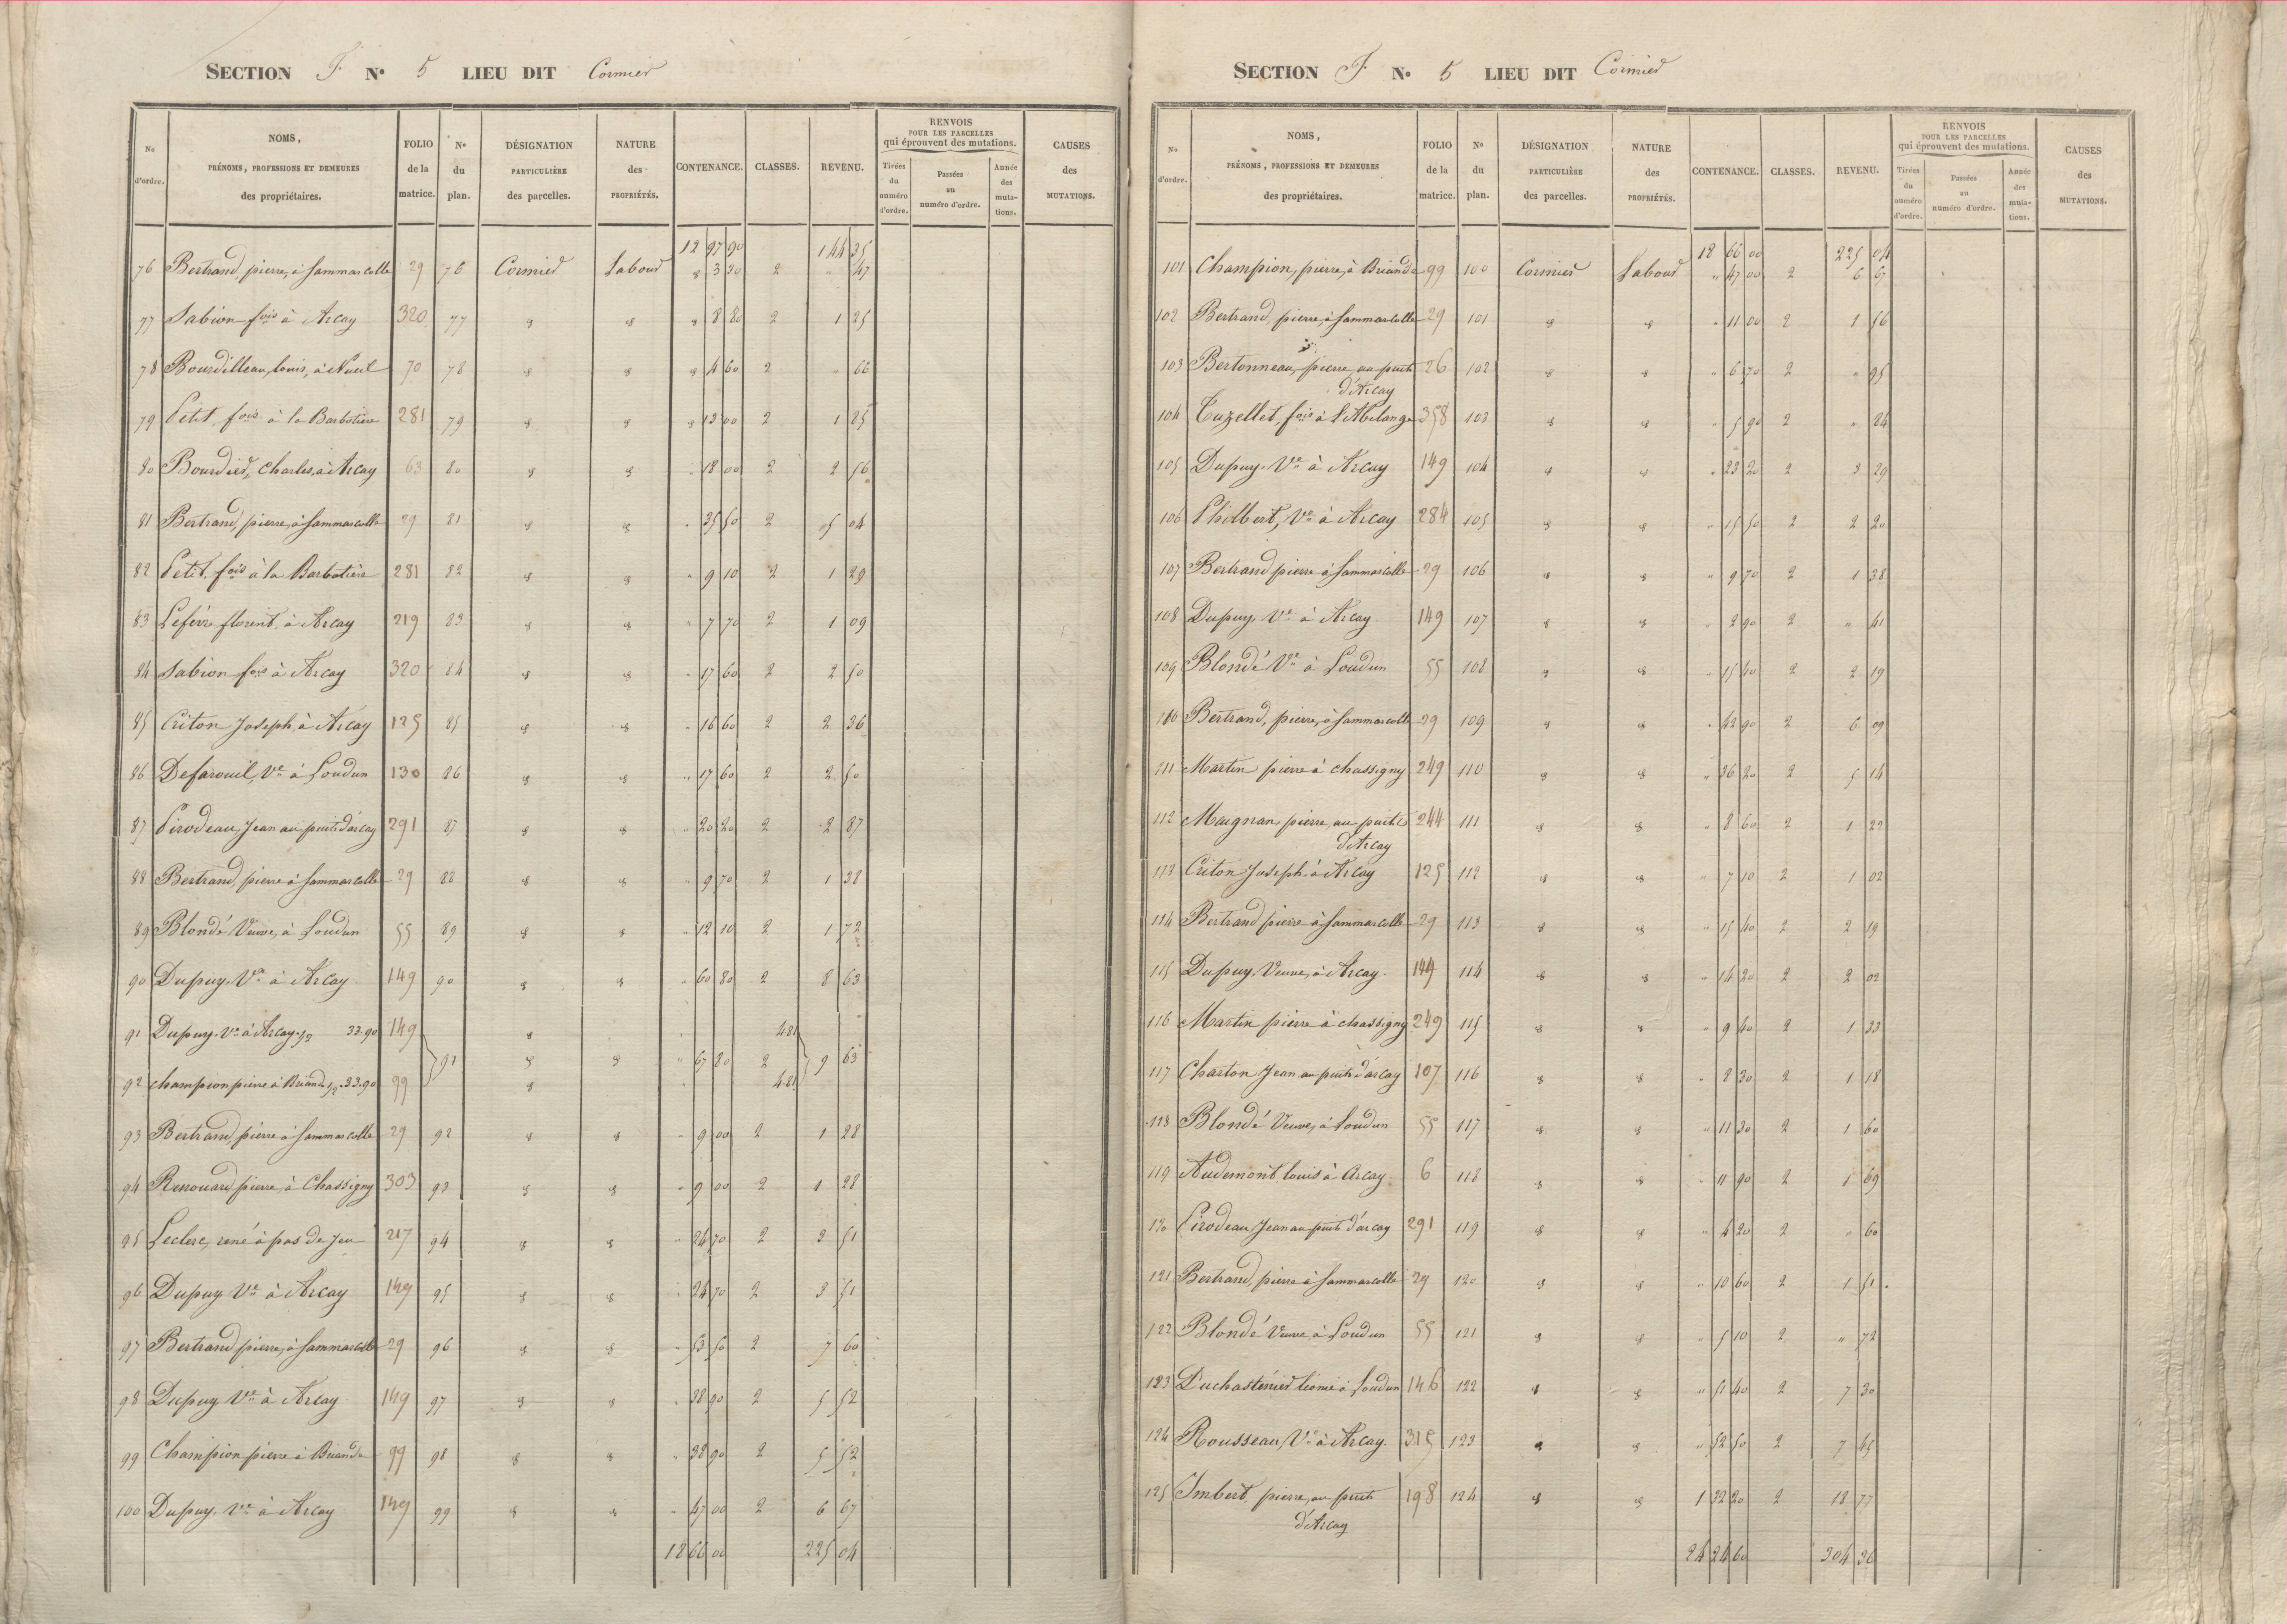 SECTION F. No 5 LIEU DIT Cormier
No d'ordre. NOMS, PRÉNOMS, PROFESSIONS ET DEMEURES des propriétaires. FOLIO de la matrice. No du plan. DÉSIGNATION PARTICULIÈRE des parcelles. NATURE des PROPRIÉTÉS. CONTENANCE. CLASSES. REVENU. RENVOIS POUR LES PARCELLES qui éprouvent des mutations. Tirées du numéro d'ordre. Passées au numéro d'ordre. Année des mutations. CAUSES des MUTATIONS.
12 97 90 144 35
76 Bertrand, pierre, à Sammarcolle 29 76 Cormier Labour " 3 30 2 " 47
77 Sabion fois à Arcay 320 77 " " " 8 80 2 1 25
78 Bourdilleau, louis, à Nueil 70 78 " " " 4 60 2 " 66
79 Petit, fois à la Barbotière 281 79 " " " 13 00 2 1 85
80 Bourdier, Charles, à Arcay 63 80 " " " 18 00 2 2 56
81 Bertrand, pierre, à Sammarcolle 29 81 " " " 35 50 2 5 04
82 Petit, fois à la Barbotière 281 82 " " " 9 10 2 1 29
83 Lefévre florent, à Arcay 219 83 " " " 7 70 2 1 09
84 Sabion fois à Arcay 320 84 " " " 17 60 2 2 50
85 Criton Joseph, à Arcay 125 85 " " " 16 60 2 2 36
86 Defarouil, Ve à Loudun 130 86 " " " 17 60 2 2 50
87 Pirodeau, Jean au puits d'arcay 291 87 " " " 20 20 2 2 87
88 Bertrand, pierre à Sammarcolle 29 88 " " " 9 70 2 1 38
89 Blondé Veuve, à Loudun 55 89 " " " 12 10 2 1 72
90 Dupuy, Ve à Arcay 149 90 " " " 60 80 2 8 63
91 Dupuy, Ve à Arcay 1/2 33.90 149 " 4 81
91 " " " 67 80 2 9 63
92 Champion pierre à Briande 1/2 33.90 99 " 4 81
93 Bertrand pierre à Sammarcolle 29 92 " " " 9 00 2 1 28
94 Renouard pierre, à Chassigny 303 93 " " " 9 00 2 1 28
95 Leclerc, rené à pas de Jeu 217 94 " " " 24 70 2 3 51
96 Dupuy Ve à Arcay 149 95 " " " 24 70 2 3 51
97 Bertrand pierre, à Sammarcolle 29 96 " " " 53 50 2 7 60
98 Dupuy Ve à Arcay 149 97 " " " 38 90 2 5 52
99 Champion pierre à Briande 99 98 " " " 38 90 2 5 52
100 Dupuy, Ve à Arcay 149 99 " " " 47 00 2 6 67
18 66 00 225 04
SECTION F. No 5 LIEU DIT Cormier
No d'ordre. NOMS, PRÉNOMS, PROFESSIONS ET DEMEURES des propriétaires. FOLIO de la matrice. No du plan. DÉSIGNATION PARTICULIÈRE des parcelles. NATURE des PROPRIÉTÉS. CONTENANCE. CLASSES. REVENU. RENVOIS POUR LES PARCELLES qui éprouvent des mutations. Tirées du numéro d'ordre. Passées au numéro d'ordre. Année des mutations. CAUSES des MUTATIONS.
18 66 00 225 04
101 Champion, pierre, à Briande 99 100 Cormier Labour " 47 00 2 6 67
102 Bertrand, pierre, à Sammarcolle 29 101 " " " 11 00 2 1 56
103 Bertonneau, pierre, au puits 26 102 " " " 6 70 2 " 95
d'Arcay
104 Tuzellet, fois à 358 103 " " " 5 90 2 " 84
105 Dupuy, Ve à Arcay 149 104 " " " 23 20 2 3 29
106 Philbert, Ve à Arcay 284 105 " " " 15 50 2 2 20
107 Bertrand pierre à Sammarcolle 29 106 " " " 9 70 2 1 38
108 Dupuy, Ve à Arcay 149 107 " " " 2 90 2 " 41
109 Blondé Ve à Loudun 55 108 " " " 15 40 2 2 19
110 Bertrand, pierre, à Sammarcolle 29 109 " " " 42 90 2 6 09
111 Martin pierre à Chassigny 249 110 " " " 36 20 2 5 14
112 Maignan, pierre, au puits 244 111 " " " 8 60 2 1 22
d'Arcay
113 Criton Joseph à Arcay 125 112 " " " 7 10 2 1 02
114 Bertrand pierre à Sammarcolle 29 113 " " " 15 40 2 2 19
115 Dupuy, Veuve, à Arcay. 149 114 " " " 14 20 2 2 02
116 Martin pierre à chassigny 249 115 " " " 9 40 2 1 33
117 Charton Jean au puits d'arcay 107 116 " " " 8 30 2 1 18
118 Blondé Veuve, à Loudun 55 117 " " " 11 30 2 1 60
119 Audemont, louis à Arcay. 6 118 " " " 11 90 2 1 69
120 Pirodeau, Jean au puits d'arcay 291 119 " " " 4 20 2 " 60
121 Bertrand, pierre à Sammarcolle 29 120 " " " 10 60 2 1 51
122 Blondé Veuve à Loudun 55 121 " " " 5 10 2 " 72
123 Duchastenier à Loudun 146 122 " " " 51 40 2 7 30
124 Rousseau, Ve à Arcay. 315 123 " " " 52 50 2 7 45
125 Imbert, pierre, au puits 198 124 " " 1 32 20 2 18 77
d'Arcay
24 24 60 304 36